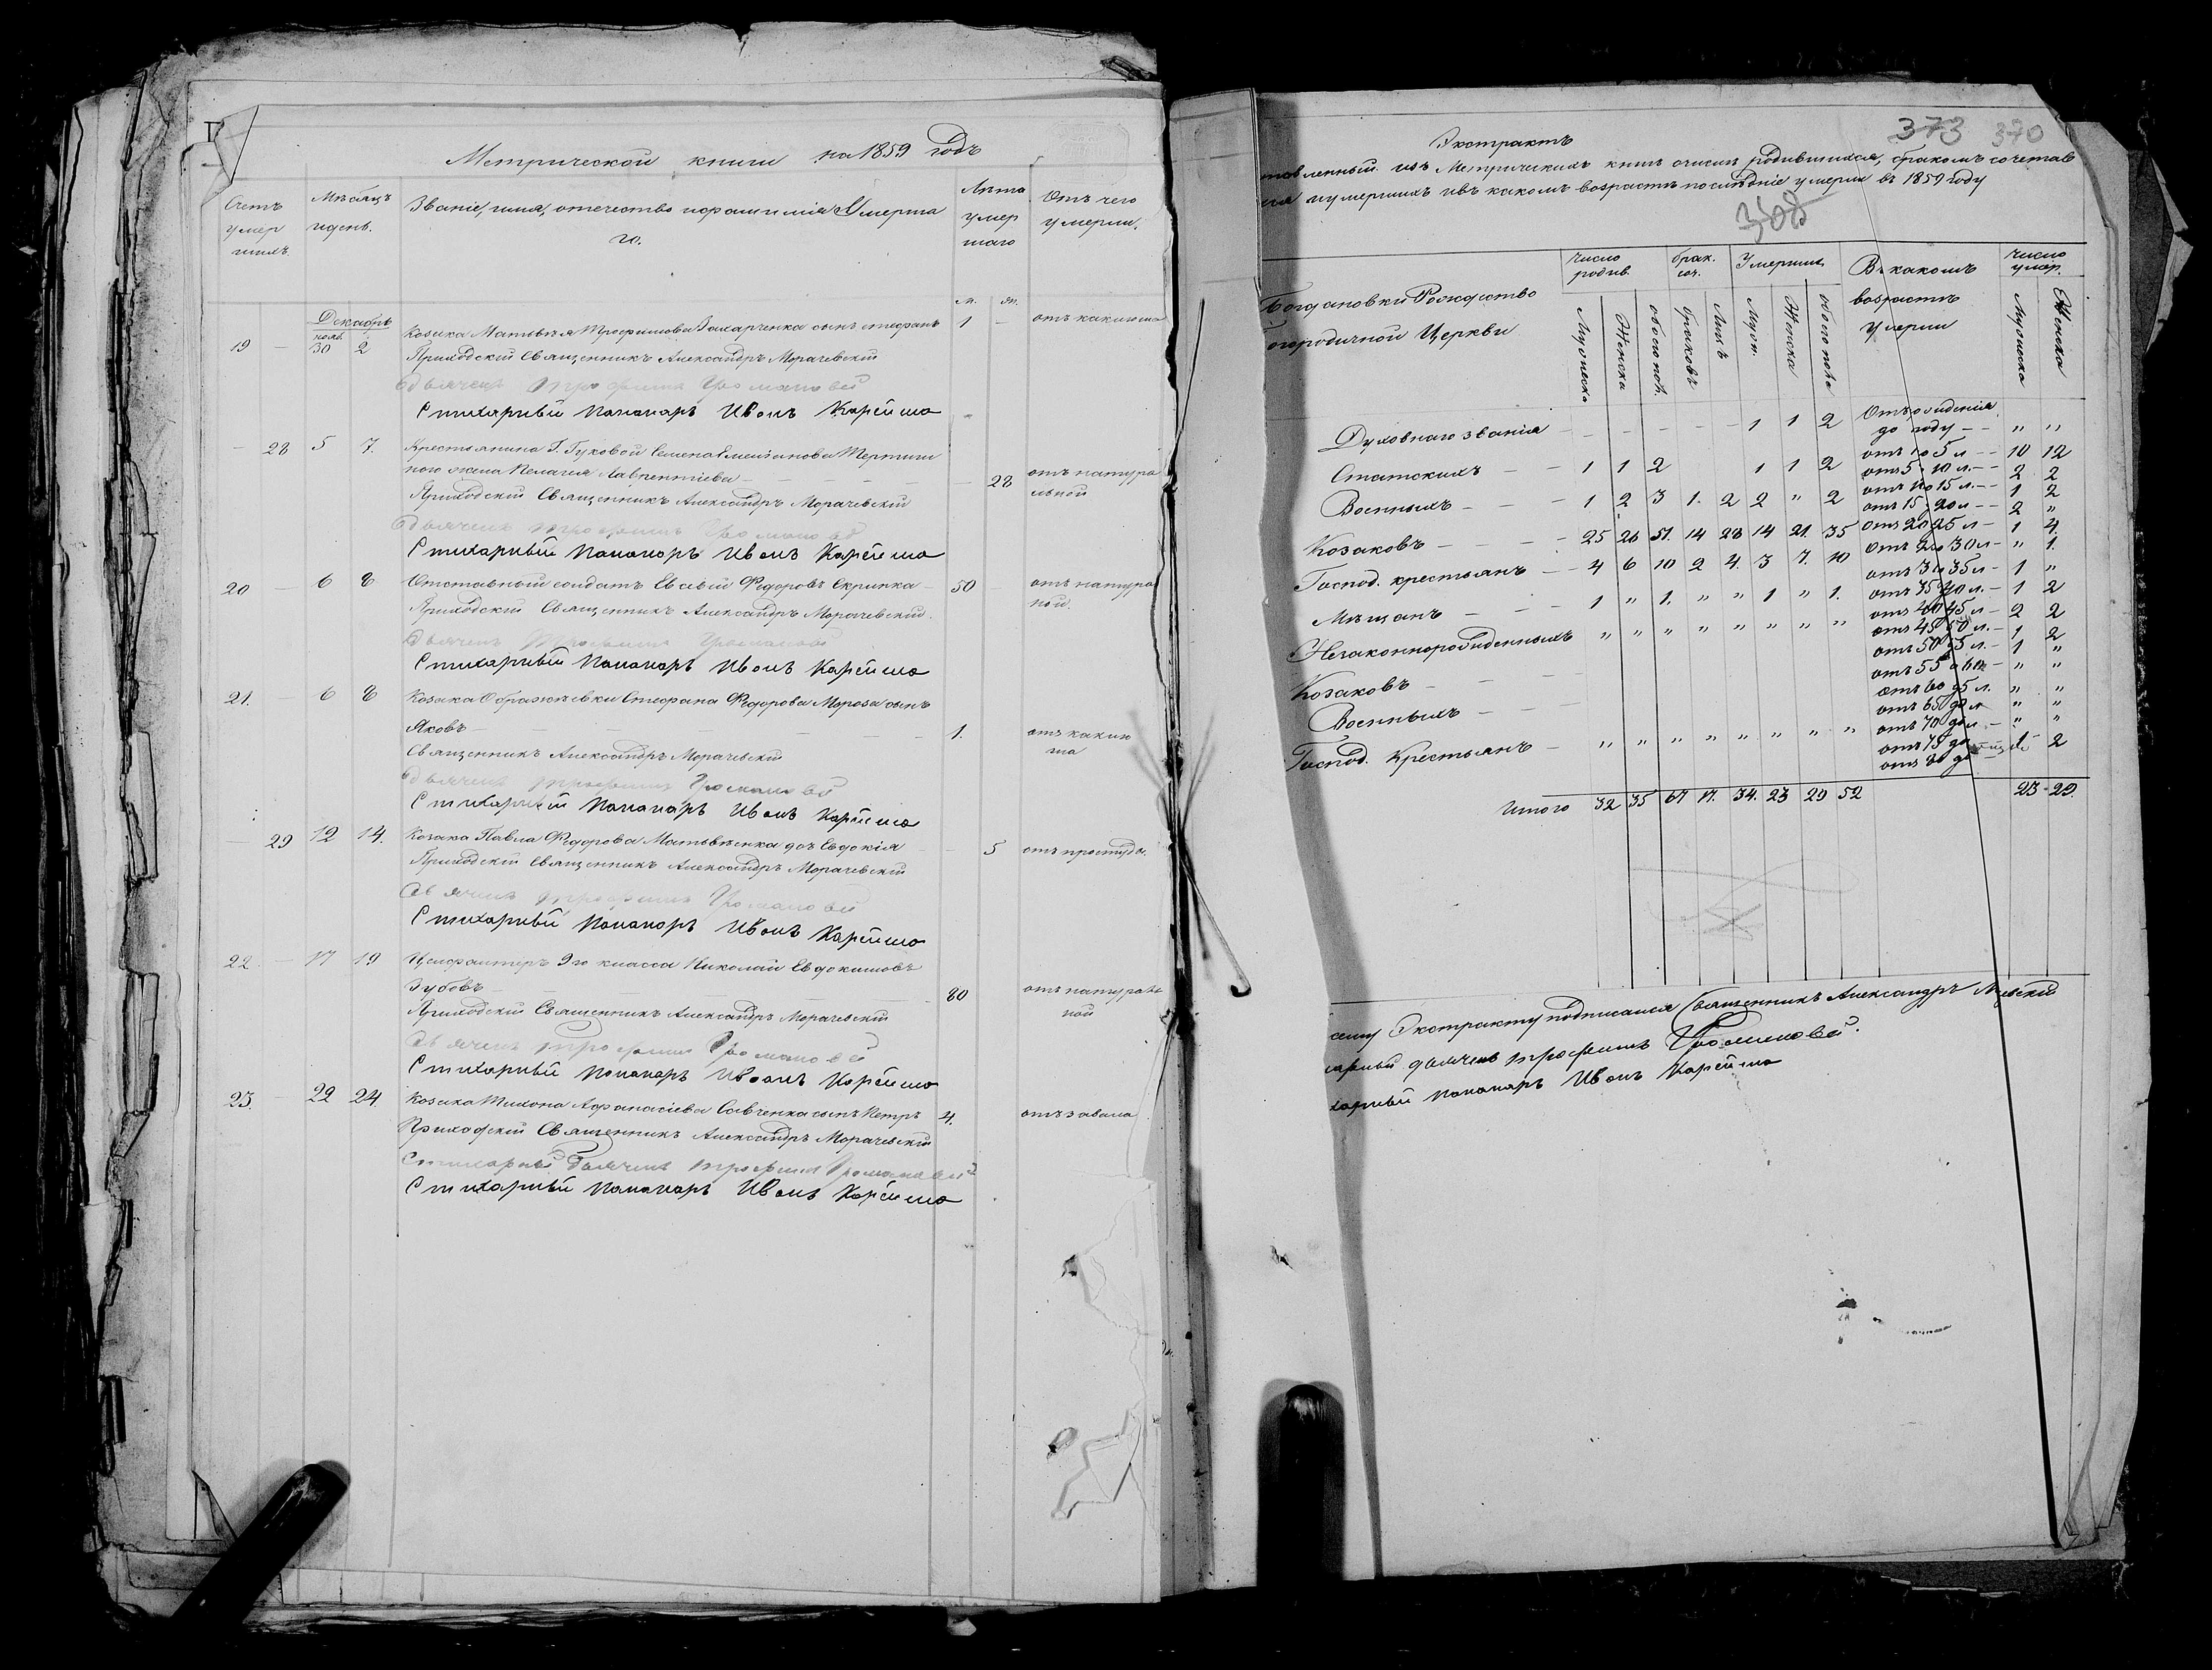 Метрической книги на 1859 годъ
Счетъ умер шихъ.
Мѣсяцъ и день.
Званіе, имя, отечество и фамилія Умерша го.
Лѣта умер шаго
Отъ чего умерли.
м. ж.
Декабрь
19 — нояб. 30 2 Козака Матвѣя Трофимова Захарченка сынъ Стефанъ 1 — отъ кашлюша
Приходскій Священникъ Александръ Морачевскій
дьячекъ Трофимъ Громаковъ
Стихарный Пономарь Иванъ
— 28 5 7. Крестьянина Г. Гуковой Семена
ного жена Пелагея Лаврентіева — 28 отъ натура
льной
Приходскій Священникъ Александръ Морачевскій
дьячекъ Трофимъ
Стихарный Пономарь Иванъ
20 — 6 8 Отставный солдатъ Евсевій Федоровъ Скрипка 50 — отъ натура
ной.
Приходскій Священникъ Александръ Морачевскій.
дьячекъ Трофимъ
Стихарный Пономарь Иванъ
21. — 6 8 Козака Ображіевки Стефана Федорова Мороза сынъ
Яковъ — 1. отъ кашлю
ша
Священникъ Александръ Морачевскій
дьячекъ Трофимъ
Стихарный Пономарь Иванъ
— 29 12 14. Козака Павла Федорова Матвѣенка доч Евдокія — 5 отъ простуды.
Приходскій Священникъ Александръ Морачевскій
дьячекъ Трофимъ
Стихарный Пономарь Иванъ
22. — 17 19 9го класса Николай Евдокимовъ
Зубовъ 80 отъ натураль
ной
Приходскій Священникъ Александръ Морачевскій
дьячекъ Трофимъ
Стихарный Пономарь Иванъ
23. — 22 24. Козака Тихона Афанасіева Савченка сынъ Петръ 4. отъ завала
Приходскій Священникъ Александръ Морачевскій
Стихарный дьячекъ Трофимъ
Стихарный Пономарь Иванъ
373 370
Экстрактъ
тавленный изъ Метрическихъ книгъ о числѣ родившихся, бракомъ сочетав
ся и умершихъ и въ какомъ возрастѣ послѣдніе умерли въ 1859 году
368
Богдановки Рождество
огородичной Церкви
Число родив.
брак. соч.
Умерших
Въ какомъ возрастѣ умерли
Число умер.
Мужеска Женска обоего пол. браковъ Лицъ Муж. Женска обоего пола Мужеска Женска
Духовнаго званія — — — — — 1 1 2 Отъ рожденія
до году — — " "
Статскихъ — — 1 1 2 1 1 2 отъ 1 до 5 л — — 10 12
отъ 5 10 л. — — 2 2
Военныхъ — — 1 2 3 1. 2 2 " 2 отъ 10 15 л. — — 1 2
отъ 15 20 л — — 2 "
Козаковъ — — — 25 26 51. 14 28 14 21. 35 отъ 20 25 л — 1 4.
отъ 25 30 л — " 1.
Господ. крестьянъ — — 4 6 10 2 4. 3 7. 10 отъ 30 35 л — 1 "
Мѣщанъ — — 1 " 1. " " 1 " 1. отъ 35 40 л. — 1 2
отъ 40 45 л — 2 2
Незаконнорожденныхъ " " " " " " " " отъ 45 50 л. — 1 2
отъ 50 55 л. — 1 "
Козаковъ — — — отъ 55 60 — " "
отъ 60 65 л. " "
Военныхъ — — — отъ 65 до л " "
отъ 70 до л. — " "
Господ. Крестьянъ — " " " " " " " " отъ 75 до 1 2
отъ 80 до
Итого 32 35 67 17. 34. 23 29 52 23 — 29.
сему Экстракту подписался Священникъ Александръ
дьячекъ Трофимъ
харный пономарь Иванъ